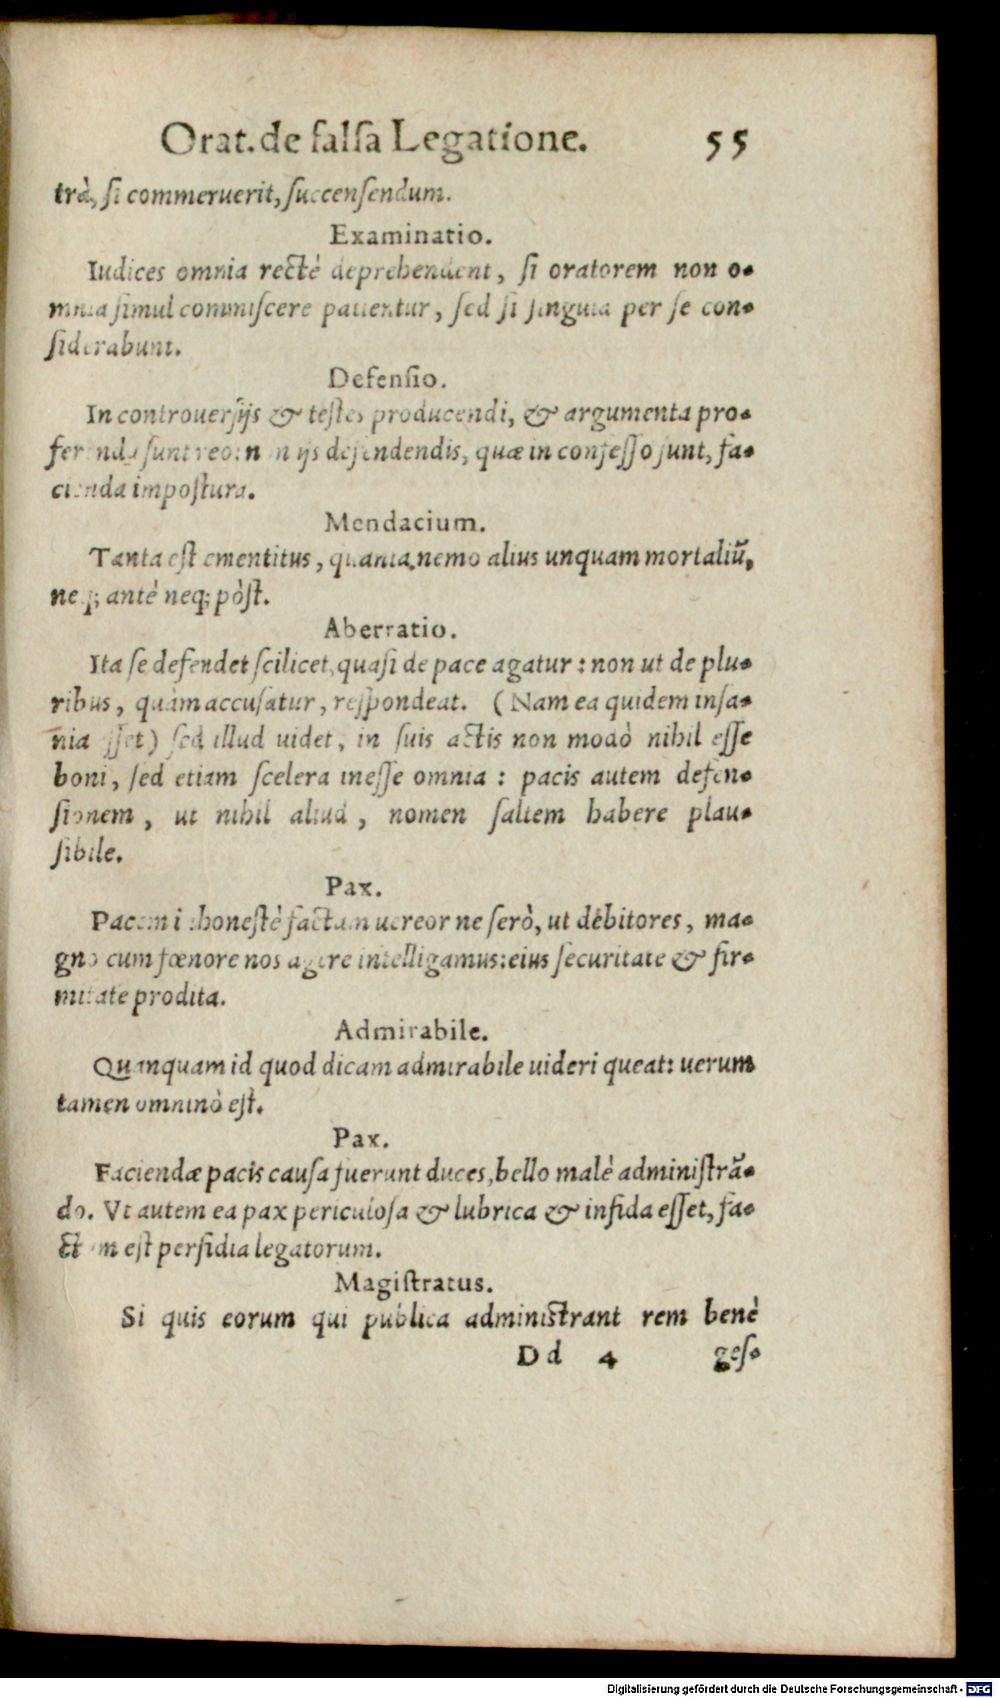 Orat. de falsa Legatione. 55
trà, ſi commeruerit, ſuccenſendum.
Examinatio.
Iudices omnia rectè deprehendent, ſi oratorem non o-
mnia ſimul commiſcere patientur, ſed ſi ſingula per ſe con-
ſiderabunt.
Defenſio.
In controuerſijs & teſtes producendi, & argumenta pro-
ferenda ſunt reo: non ijs defendendis, quæ in confeſſo ſunt, fa-
cienda impoſtura.
Mendacium.
Tanta eſt ementitus, quanta nemo alius unquam mortaliū,
neq; antè neq; pòſt.
Aberratio.
Ita ſe defendet ſcilicet, quaſi de pace agatur: non ut de plu-
ribus, quàm accuſatur, reſpondeat. (Nam ea quidem inſa-
nia eſſet) ſed illud uidet, in ſuis actis non modò nihil eſſe
boni, ſed etiam ſcelera ineſſe omnia: pacis autem defen-
ſionem, ut nihil aliud, nomen ſaltem habere plau-
ſibile.
Pax.
Pacem honeſtè factam uereor ne ſerò, ut debitores, ma-
gno cum fœnore nos agere intelligamus: eius ſecuritate & fir-
mitate prodita.
Admirabile.
Quanquam id quod dicam admirabile uideri queat: uerum
tamen omninò eſt.
Pax.
Faciendæ pacis cauſa fuerunt duces, bello malè adminiſtrā-
do. Vt autem ea pax periculoſa & lubrica & infida eſſet, fa-
ctum eſt perfidia legatorum.
Magiſtratus.
Si quis eorum qui publica adminiſtrant rem benè
Dd 4 geſ-
Digitalisierung gefördert durch die Deutsche Forschungsgemeinschaft - DFG